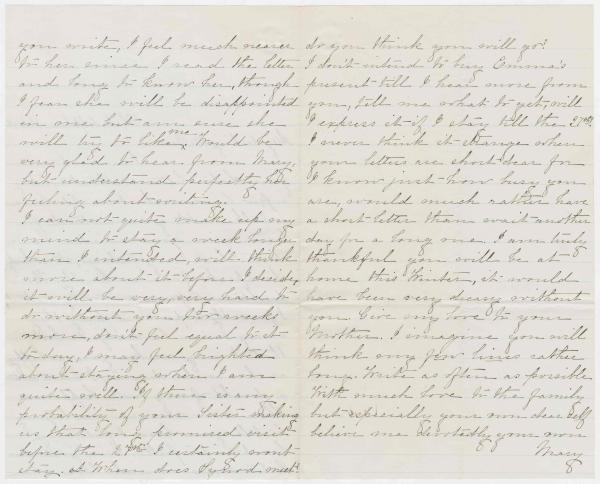 you write, I feel much nearer
to her since I read the letter
and long to know her, though
I fear she will be disappointed
in me but am sure she
will try to like me. Would be
very glad to hear from Mary,
but understand perfectly her
feeling about writing.
I can not quite make up my
mind to stay a week longer
than I intended, will think
more about it before I decide,
it will be very, very hard to
do without you two weeks
more, don't feel equal to it
to day, I may feel
about staying when I am
quite well. If there is any
probability of your Sister making
us that long promised visit
before the I certainly won't
stay. When does Synod meet?
do you think you will go?
I don't intend to buy Emma's
present till I hear more from
you, tell me what to get, will
I express it if I stay till the
I never think it strange when
your letters are short dear for
I know just how busy you
are, would much rather have
a short letter than wait another
day for a long one. I am truly
thankful you will be at
home this Winter, it would
have been very dreary without
you. Give my love to your
Mother. I imagine you will
think my few lines rather
long. Write as often as possible
With much love to the family
but especially your own dear self
believe me devotedly your own
Mary